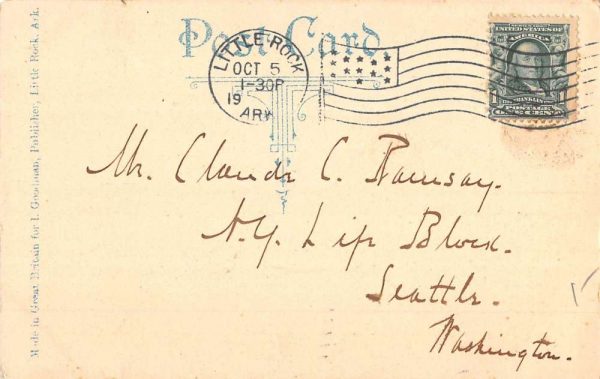 Post Card
LITTLE ROCK
OCT 5
1-30P
19
ARK
UNITED STATES OF AMERICA
1 1
FRANKLIN
POSTAGE
ONE CENT
Mr. Claude C. Ramsay.
N.Y. Lif Block.
Seattle.
Washington.
Made in Great Britain for I. Goodman, Publisher, Little Rock, Ark.